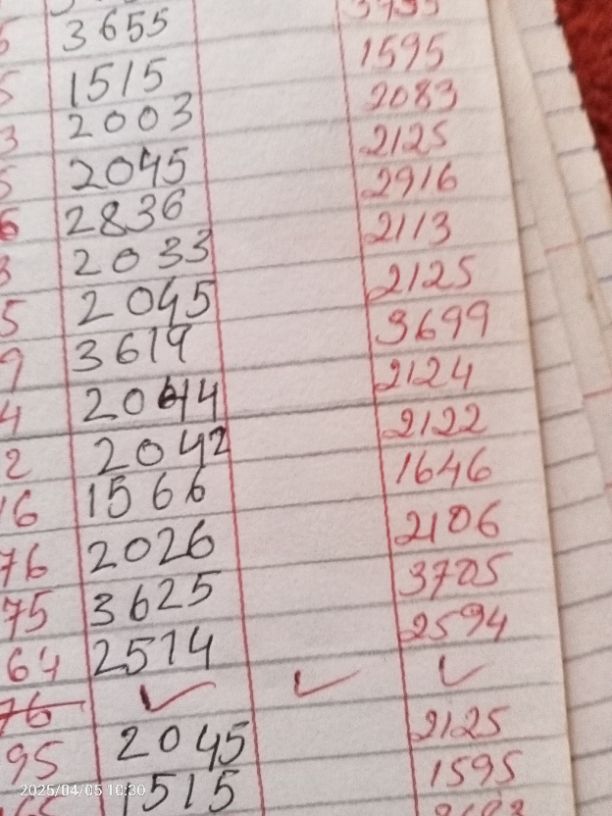 5 3655 3735
5 1515 1595
3 2003 2083
5 2045 2125
6 2836 2916
3 2033 2113
5 2045 2125
9 3619 3699
4 2044 2124
2 2042 2122
16 1566 1646
76 2026 2106
75 3625 3705
64 2514 2594
76 ✓ ✓ ✓
95 2045 2125
1515 1595
2025/04/05 10:30